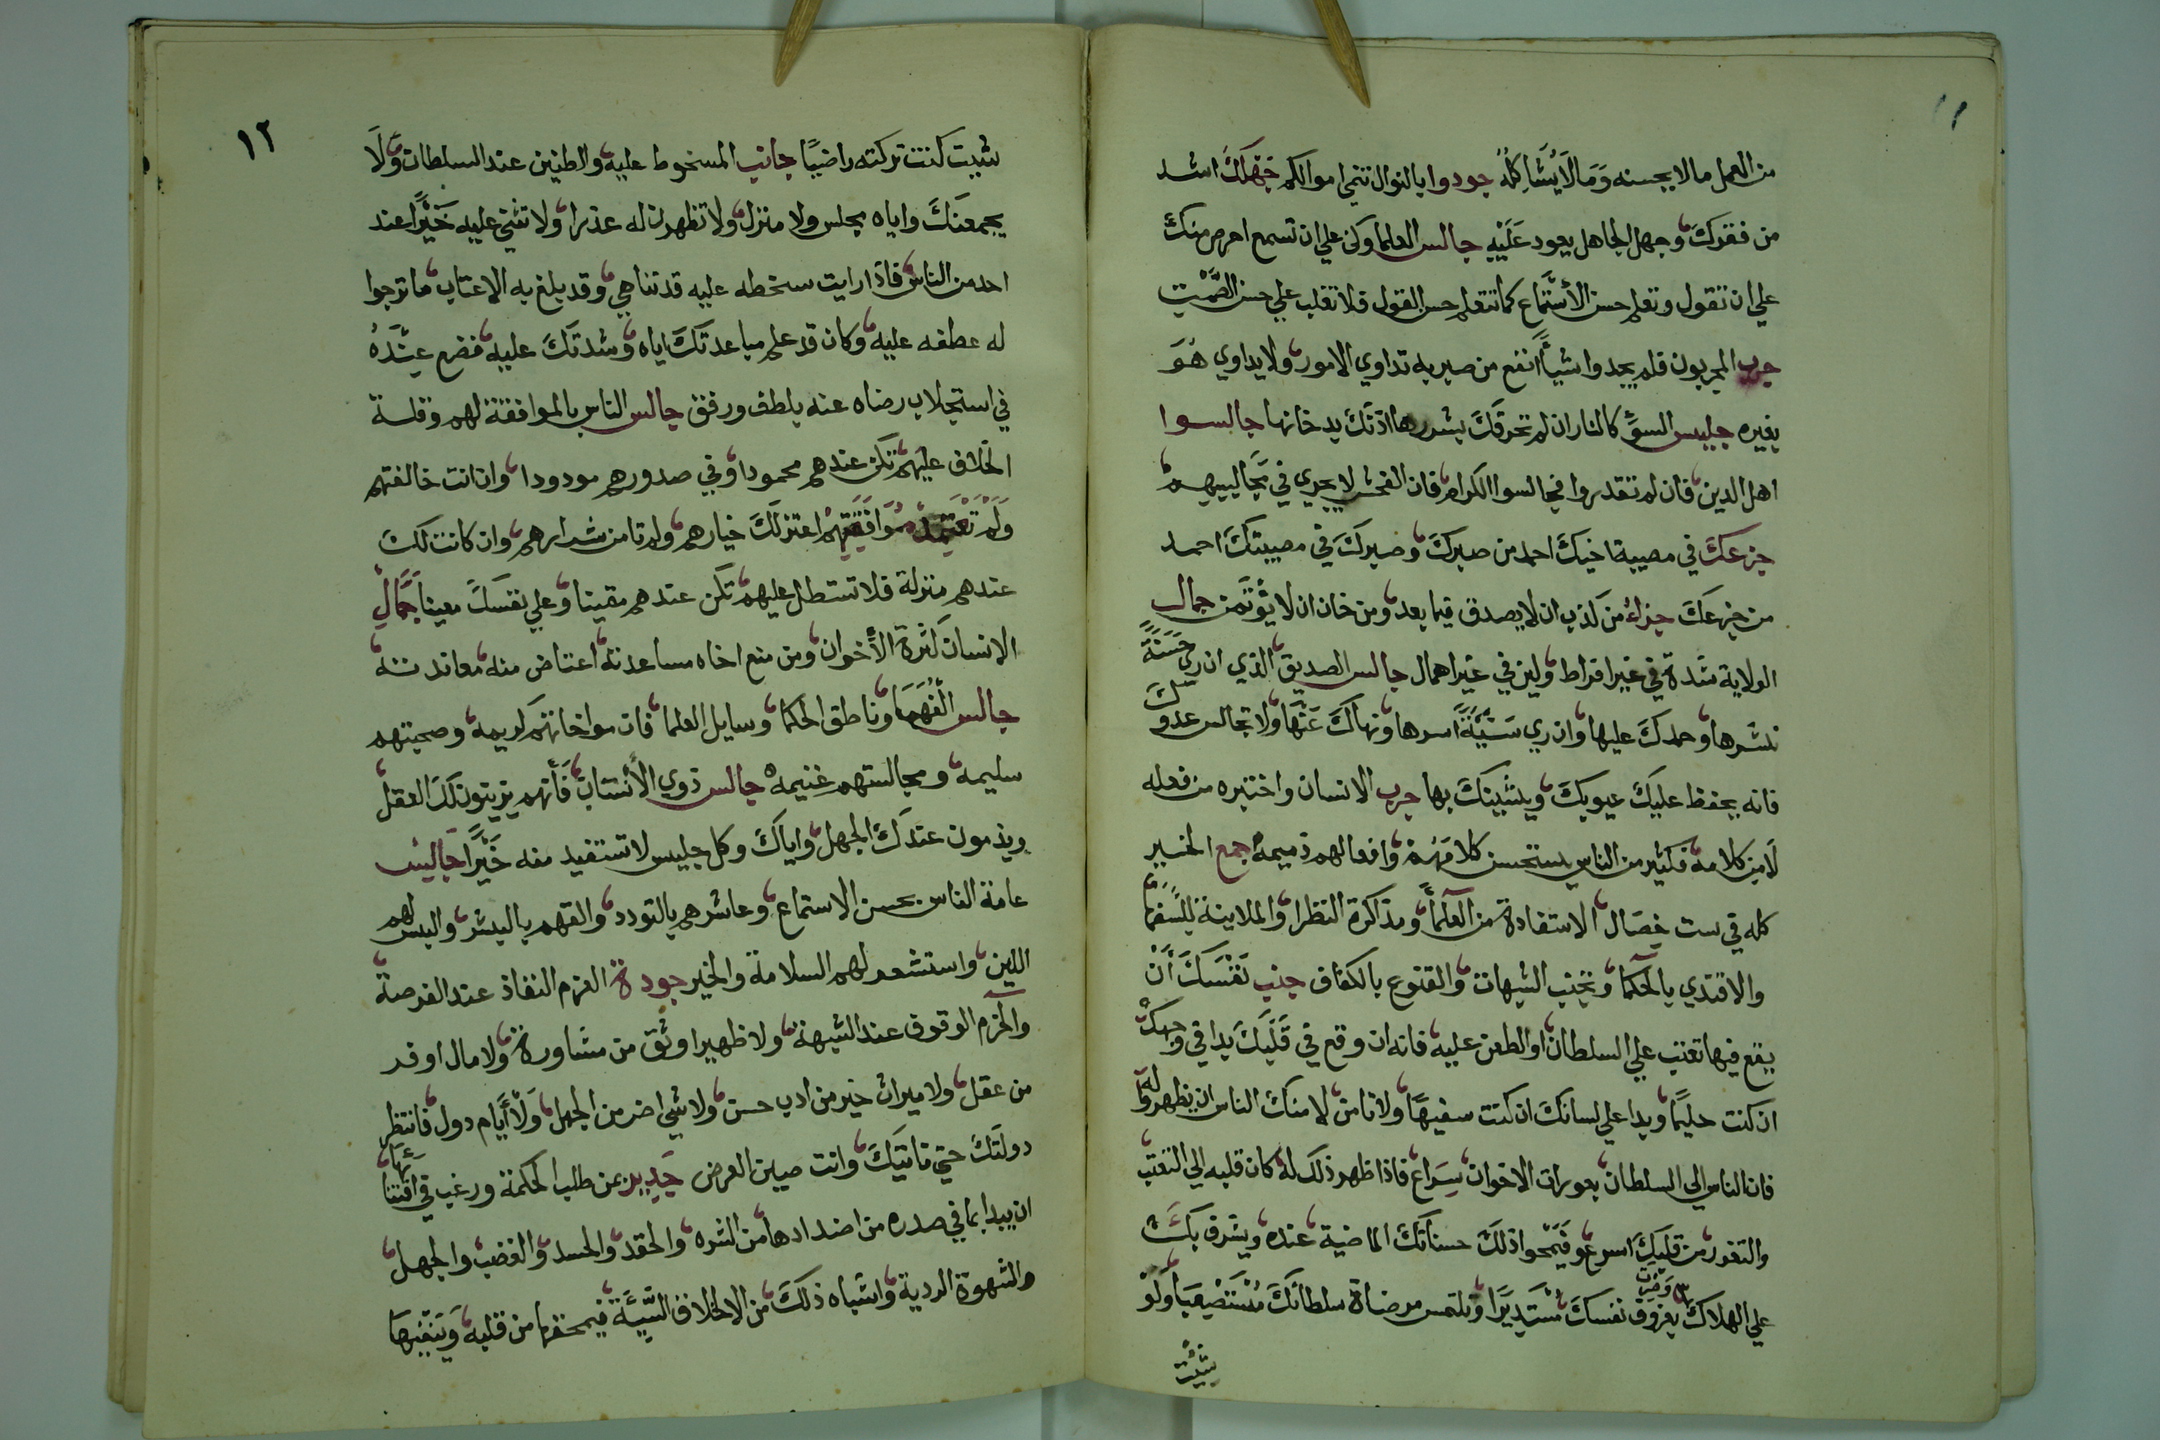 ١١
من العمل مالا يحسنه وَمَا لَا يُشَاكِلُهُ جودوا بالنوال تنمي اموالكم جَهْلَكَ اشد
من فقرك وجهل الجاهل يعود عَلَيْهِ جالس العلما وكن علي ان تسمع احرص منك
علي ان تقول وتعلم حسن الأستِمَاع كما تتعلم حسن القول فلا تغلب علي حسن الصَّمْتِ
جرب المجربون فلم يجدوا شيأً أنفع من صبر به تداوي الامور ولا يداوي هُوَ
بغيره جليس السوّ كالنار ان لم تحرقَكَ بشررها اذتكَ بدخانها جالسوا
اهل الدين فان لم تقدروا فجالسوا الكرام فان الفحش لا يجري في مَجَاليسهم
جزعكَ في مصيبة اخيكَ احمد من صبركَ وصبركَ في مصيبتكَ احمد
من جزعَكَ جزاءُ من كذب ان لا يصدق فيما بعد ومن خان ان لا يؤتَمن جمال
الولاية شدة في غير افراط ولين في غير اهمال جالس الصديق الذي ان ري حَسَنَةً
نشرها وحمدكَ عليها وان ري سَيّئَةً اسرها ونهاكَ عَنْهَا ولا تجالس عدوكَ
فانه يحفظ عليكَ عيوبكَ ويشينكَ بها جرب الانسان واختبره من فعله
لَا من كلامه فكثير من الناس يستحسن كلامَهُمْ وافعالهم ذميمهْ جمع الخير
كله في ست خِصَال الاستفادة من العلمآ ومذاكرة النظرا والملاينة للسُفَهآ
والاقتدي بالحكما وتجنب الشبهات والقنوع بالكفاف جنب نَفْسَكَ أَنْ
يقع فيها تعتب علي السلطان او الطعن عليه فانه ان وقع في قَلْبِكَ بدا في وجهكَ
ان كنت حليمًا وبدا علي لسانكَ ان كنت سفيهًا ولا تامن لا منك الناس ان يظهر له
فان الناس الي السلطان بعورات الاخوان سِرَاع فاذا ظهر ذلك له كان قلبه الي التعتب
والتفور من قلبكَ اسرع فَيَمْحوا ذلكَ حسناتكَ الماضية عنده ويشرف بكَ
علي الهلاكَ نفسكَ مُسْتَدِبرًا وتلتمس مرضاة سلطانكَ مُسْتَصْعِبًا وَلَوْ
شيئت
١٢
شيت كنت تركته راضيًا جانب المسخوط عليه والظنين عند السلطان وَلَا
يجمعنَكَ واياه مجلس ولا منزل ولا تظهرن له عذرا ولا تثني عليه خَيْرًا عند
احد من الناس فاذا رايت سخطه عليه قد تناهي وقد بلغ به الاعتاب ما ترجوا
له عطفه عليه وكان قد علم مباعدتَكَ اياه وشدتَكَ عليه فضع عِنْدَهُ
في استجلاب رضاه عنه بلطف ورفق جالس الناس بالموافقة لهم وقلة
الخلاف عليهم تكن عندهم محمودا وفي صدورهم مودودا وان انت خالفتهم
وَلَمْ تَعْتَمِد مُوَافَقَتِهِمْ اعتزلَكَ خيارهم ولم تامن شرارهم وان كانت لك
عندهم منزلة فلا تستطل عليهم تكن عندهم مقيتا وعلي نفسَكَ معينا جَمَالِ
الانسان كثرة الأخوان ومن منع اخاه مساعدته اعتاض منه معاندته
جالس الفُهَمَا وناطق الحكما وسايل العلما فان مواخاتهم كريمه وصحبتهم
سليمه ومجالستهم غنيمه جالس ذوي الأنساب فَأنهم يزينون لَكَ العقل
ويذمون عندَكَ الجهل واياكَ وكل جليس لا تستفيد منه خَيْرًا جَاليس
عامة الناس بحسن الاستماع وعاشرهم بالتودد والقهم بالبشر والبس لهم
اللين واستشعر لهم السلامة والخير جودة العزم النفاذ عند الفرصة
والحزم الوقوف عند الشبهة ولا ظهير اوثق من مشاورة ولا مال اوفر
من عقل ولا ميراث خير من ادب حسن ولا شي اضر من الجهل وَلأَيَّام دول فانتظر
دولتَكَ حتي تاتيَكَ وانت صين العرض جَدِير بمن طلب الحكمة ورغب في اقتنائها
ان يبدا بما في صدره من اضدادها من الشره والحقد والحسد والغضب والجهل
والشهوة الردية واشباه ذلكَ من الاخلاق السَّيِّئَةِ فيمحقها من قلبه وَيَنْفيهَا